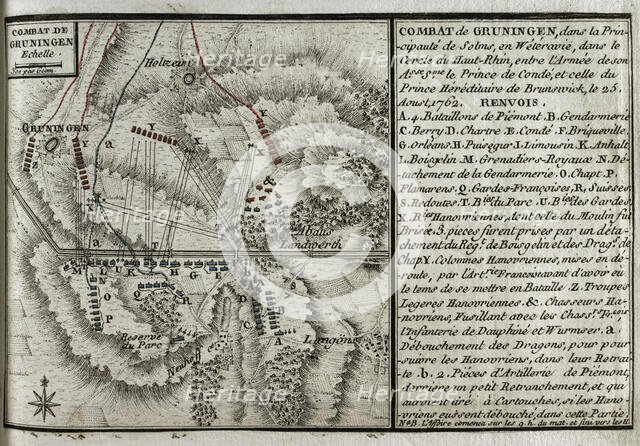 COMBAT DE
GRUNINGEN
Echelle
Holtzeim
GRUNINGEN
Abatis
Landwerth
Reserve
du Parc
Neuhoff
Langons
COMBAT de GRUNINGEN, dans la Prin-
cipauté de Solms, en Wétéravié, dans le
Cercle du Haut-Rhin, entre l'Armée de son
A.sse S.me le Prince de Condé, et celle du
Prince Héréditaire de Brunswick, le 25.
Aoust, 1762. RENVOIS.
A. 4. Bataillons de Piémont. B. Gendarmerie
C. Berry D. Chartre E. Condé F. Briqueville.
G. Orléans H. Puisegur I. Limousin K. Anhalt
L. Boisgelin M. Grenadiers-Royaux N. Dé-
tachement de la Gendarmerie. O. Chapt. P.
Flamarens. Q. Gardes-Françoises, R, Suisses
S. Redoutes. T. B.ies du Parc. U. B.ies des Gardes,
X. B.ies Hanovriennes, dont celle du Moulin fut
Brisée. 3. pieces furent prises par un déta-
chement du Reg.t de Boisgelin et des Drag.s de
Chap. Y. Colonnes Hanovriennes, mises en dé-
route, par l'Art.rie Francoise avant d'avoir eu
le tems de se mettre en Bataille. Z. Troupes
Legeres Hanovriennes. &. Chasseurs Ha-
novriens, Fusillant avec les Chass.rs Fr.çois
l'Infanterie de Dauphiné et Wurmser. a.
Débouchement des Dragons, pour pour-
suivre les Hanovriens, dans leur Retrai-
te. b. 2. Pièces d'Artillerie de Piémont,
derriere un petit Retranchement, et qui
auroient tiré à Cartouches, si les Hano-
vriens eussent débouché, dans cette Partie.
N.a B. l'Affaire comença sur les 9. h. du mat. et fini vers les 11.
heritage
Heritage
Images